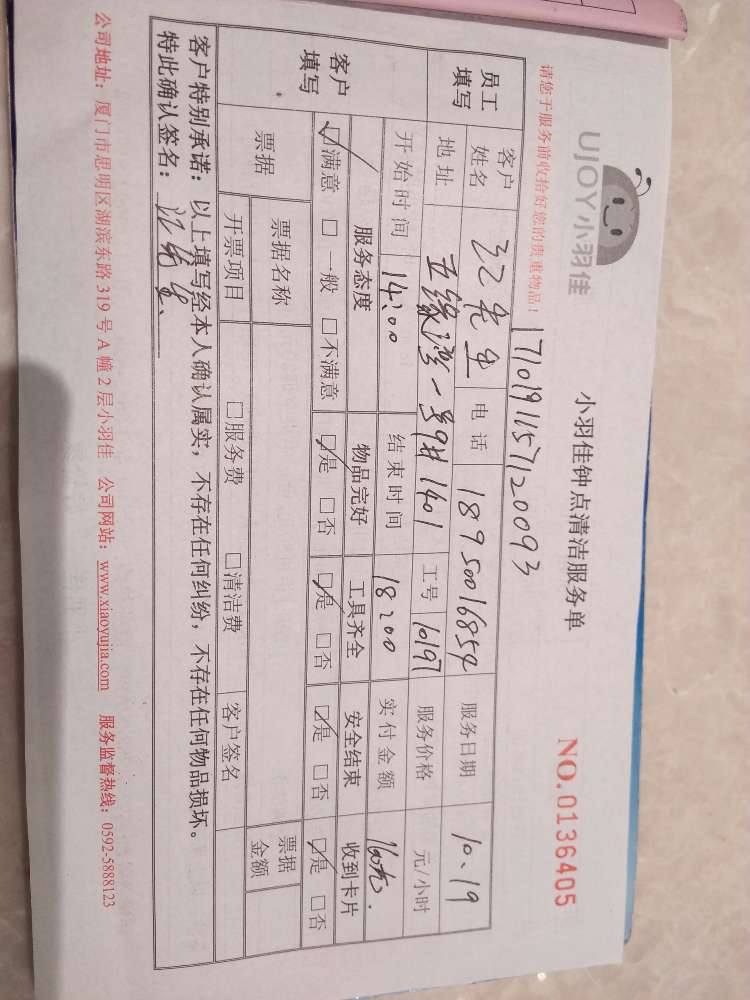 UJOY小羽佳
小羽佳钟点清洁服务单
NO.0136405
请您于服务前收拾好您的贵重物品！
1710191157120093
员工填写 客户姓名 江先生 电话 18950016854 服务日期 10.19
地址 五缘湾一号9# 1401 工号 10197 服务价格 元/小时
开始时间 14:00 结束时间 18:00 实付金额 160元.
客户填写 服务态度 物品完好 工具齐全 安全结束 收到卡片
☑满意 □一般 □不满意 ☑是 □否 ☑是 □否 ☑是 □否 ☑是 □否
票据 票据名称 票据金额
开票项目 □服务费 □清洁费 客户签名
客户特别承诺：以上填写经本人确认属实，不存在任何纠纷，不存在任何物品损坏。
特此确认签名：江先生
公司地址：厦门市思明区湖滨东路 319 号 A 幢 2 层小羽佳 公司网站：www.xiaoyujia.com 服务监督热线：0592-5888123